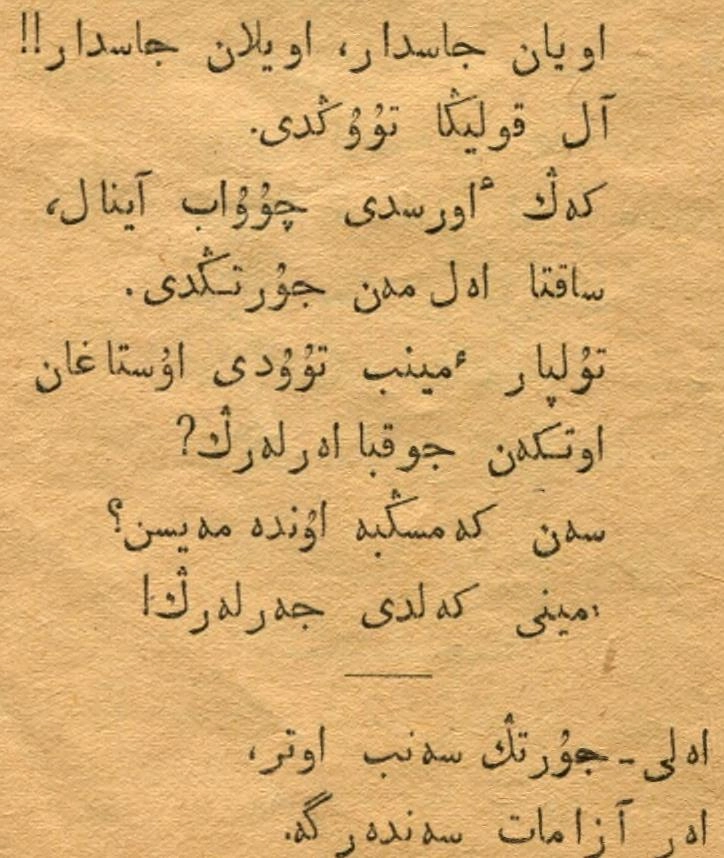 اويان جاسدار، اويلان جاسدار!!
آل قوليڭا تۇۇڭدى.
كەڭ ٴاورسدى چۇۇاب آينال،
ساقتا ەل مەن جۇرتڭدى.
تۇلپار ٴمينىب تۇۇدى اۇستاغان
اوتكەن جوقبا اەرلەرڭ؟
سەن كەمسڭبە اۇندە مەيسن؟
ٴمينى كەلدى جەرلەرڭ!
اەلى-جۇرتڭ سەنىب اوتر،
اەر آزامات سەندەرگە.